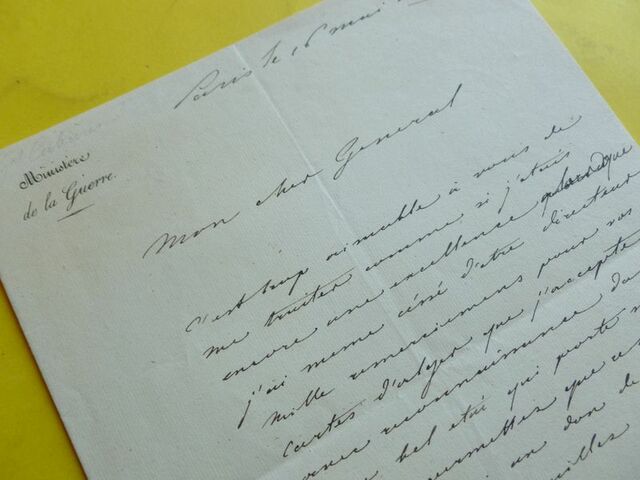 Paris le 16 mai
Ministère
de la Guerre.
Mon cher General
c'est trop aimable à vous de
me traiter comme si j'étais
encore une excellence
j'ai meme céssé d'etre directeur
mille remerciemens pour vos
cartes d'alger que j'accepte
avec reconnaissance
bel etui qui porte
que ces
un don de